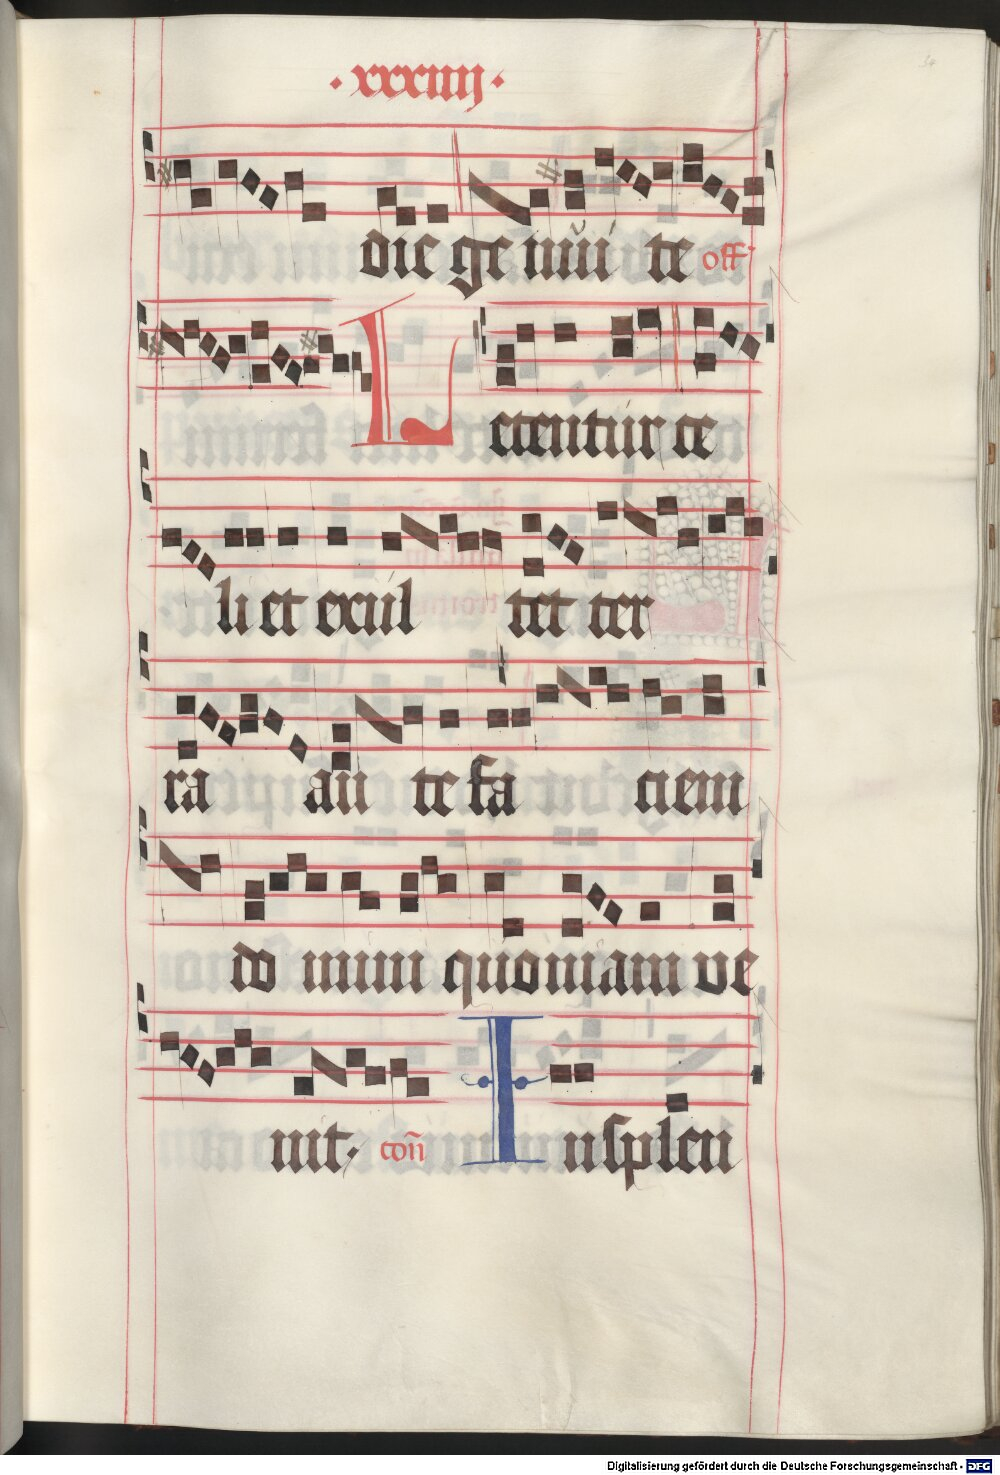 ·xxxiiij·
34
die genui te off
Letentur ce
li et exul tet ter
ra an te fa ciem
domini quoniam ve
nit, con In splen
Digitalisierung gefördert durch die Deutsche Forschungsgemeinschaft - DFG